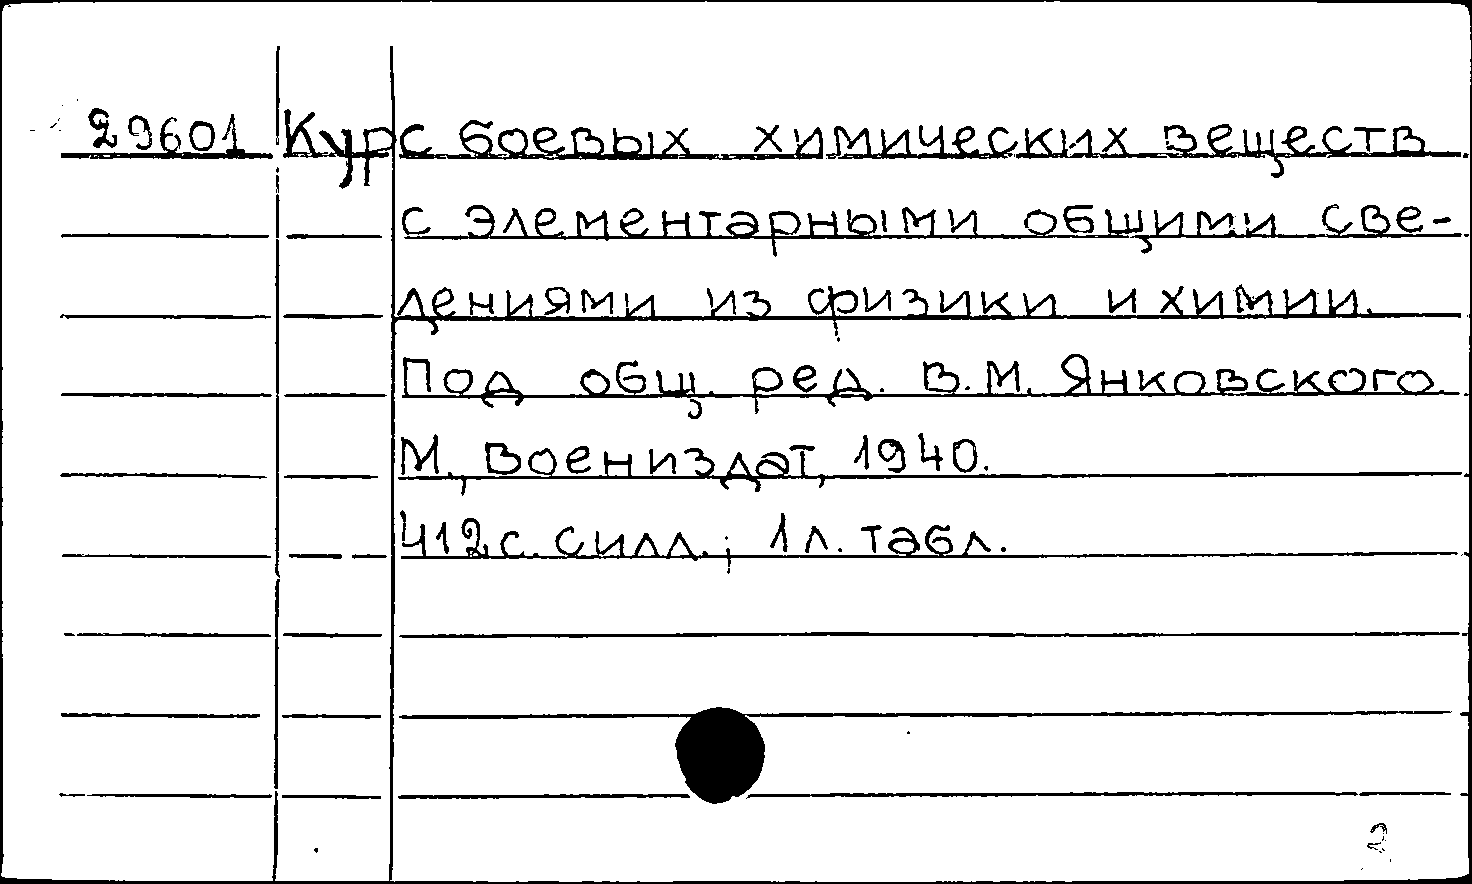 29601 Курс боевых химических веществ
с элементарными общими све-
дениями из физики и химии.
Под общ. ред. В.М. Янковского.
М., Воениздат, 1940.
412 с. с илл.; 1 л. табл.
2